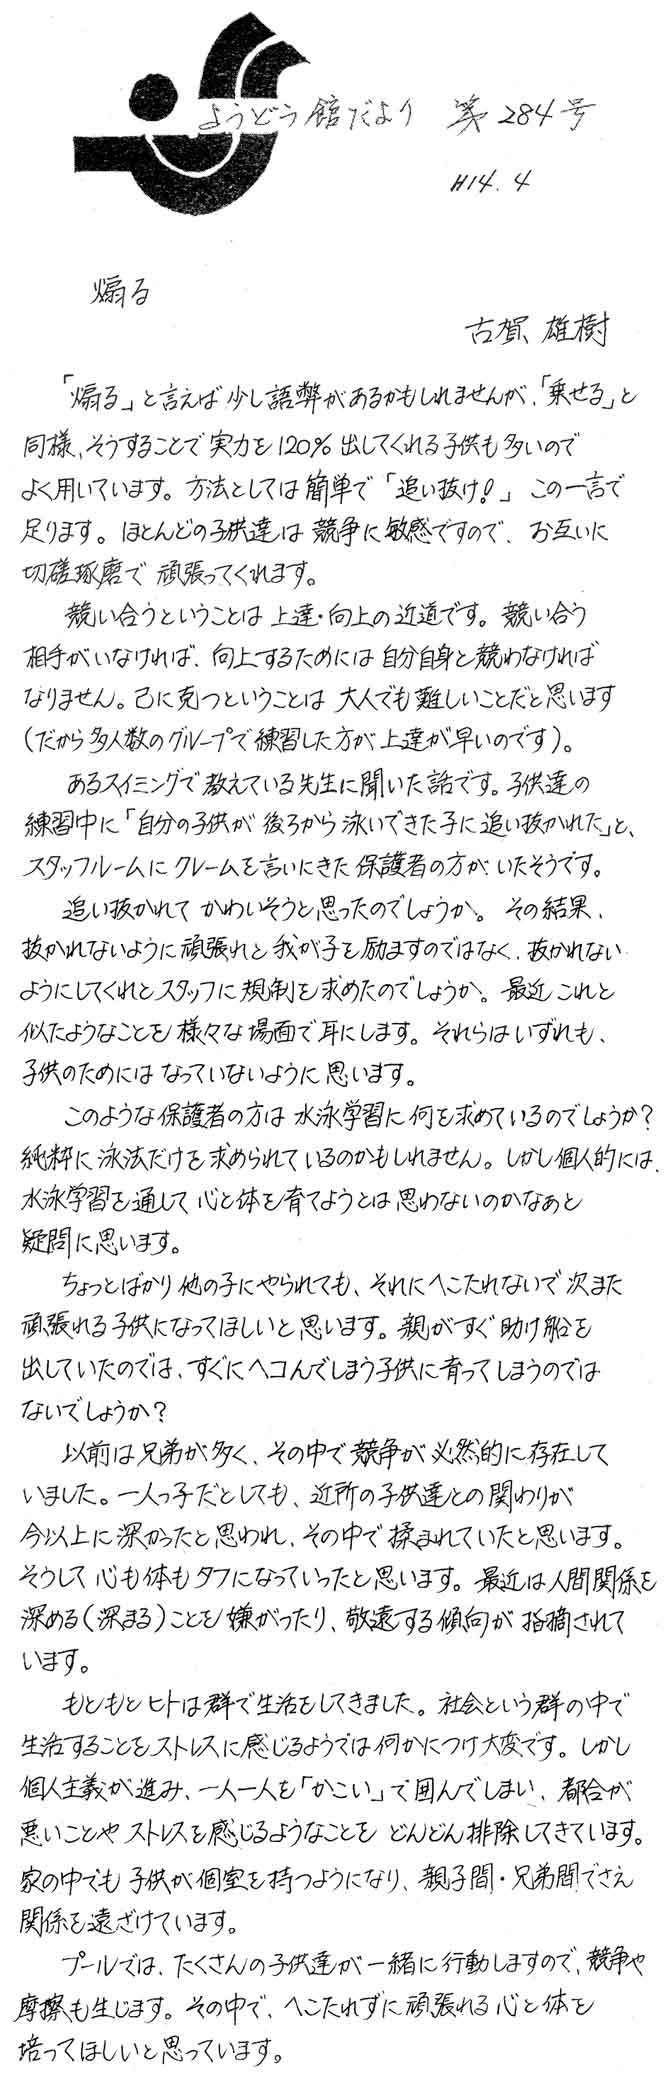 ようどう館だより 第284号
H14.4
煽る
古賀 雄樹
「煽る」と言えば少し語弊があるかもしれませんが、「乗せる」と
同様、そうすることで実力を120%出してくれる子供も多いので
よく用いています。方法としては簡単で「追い抜け!」この一言で
足ります。ほとんどの子供達は競争に敏感ですので、お互いに
切磋琢磨で頑張ってくれます。
競い合うということは上達・向上の近道です。競い合う
相手がいなければ、向上するためには自分自身と競わなければ
なりません。己に克つということは大人でも難しいことだと思います
(だから多人数のグループで練習した方が上達が早いのです)。
あるスイミングで教えている先生に聞いた話です。子供達の
練習中に「自分の子供が後ろから泳いできた子に追い抜かれた」と、
スタッフルームにクレームを言いにきた保護者の方がいたそうです。
追い抜かれてかわいそうと思ったのでしょうか。その結果、
抜かれないように頑張れと我が子を励ますのではなく、抜かれない
ようにしてくれとスタッフに規制を求めたのでしょうか。最近これと
似たようなことを様々な場面で耳にします。それらはいずれも、
子供のためにはなっていないように思います。
このような保護者の方は水泳学習に何を求めているのでしょうか?
純粋に泳法だけを求められているのかもしれません。しかし個人的には、
水泳学習を通して心と体を育てようとは思わないのかなぁと
疑問に思います。
ちょっとばかり他の子にやられても、それにへこたれないで次また
頑張れる子供になってほしいと思います。親がすぐ助け船を
出していたのでは、すぐにヘコんでしまう子供に育ってしまうのでは
ないでしょうか?
以前は兄弟が多く、その中で競争が必然的に存在して
いました。一人っ子だとしても、近所の子供達との関わりが
今以上に深かったと思われ、その中で揉まれていたと思います。
そうして心も体もタフになっていったと思います。最近は人間関係を
深める(深まる)ことを嫌がったり、敬遠する傾向が指摘されて
います。
もともとヒトは群で生活をしてきました。社会という群の中で
生活することをストレスに感じるようでは何かにつけ大変です。しかし
個人主義が進み、一人一人を「かこい」で囲んでしまい、都合が
悪いことやストレスを感じるようなことをどんどん排除してきています。
家の中でも子供が個室を持つようになり、親子間・兄弟間でさえ
関係を遠ざけています。
プールでは、たくさんの子供達が一緒に行動しますので、競争や
摩擦も生じます。その中で、へこたれずに頑張れる心と体を
培ってほしいと思っています。